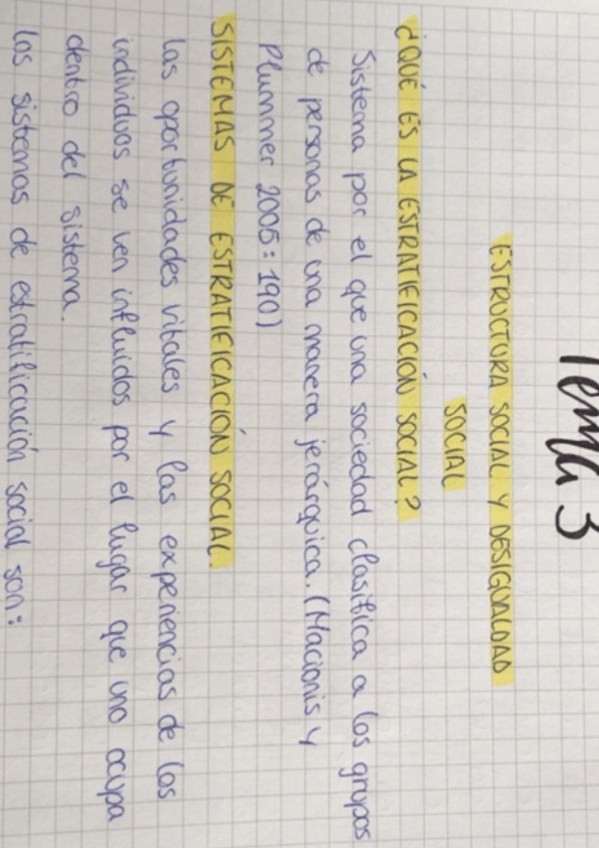 Tema 3
ESTRUCTURA SOCIAL Y DESIGUALDAD
SOCIAL
¿QUÉ ES LA ESTRATIFICACIÓN SOCIAL?
Sistema por el que una sociedad clasifica a los grupos
de personas de una manera jerárquica. (Macionis y
Plummer 2005:190)
SISTEMAS DE ESTRATIFICACIÓN SOCIAL.
Las oportunidades vitales y las experiencias de los
individuos se ven influidos por el lugar que uno ocupa
dentro del sistema.
Los sistemas de estratificación social son: